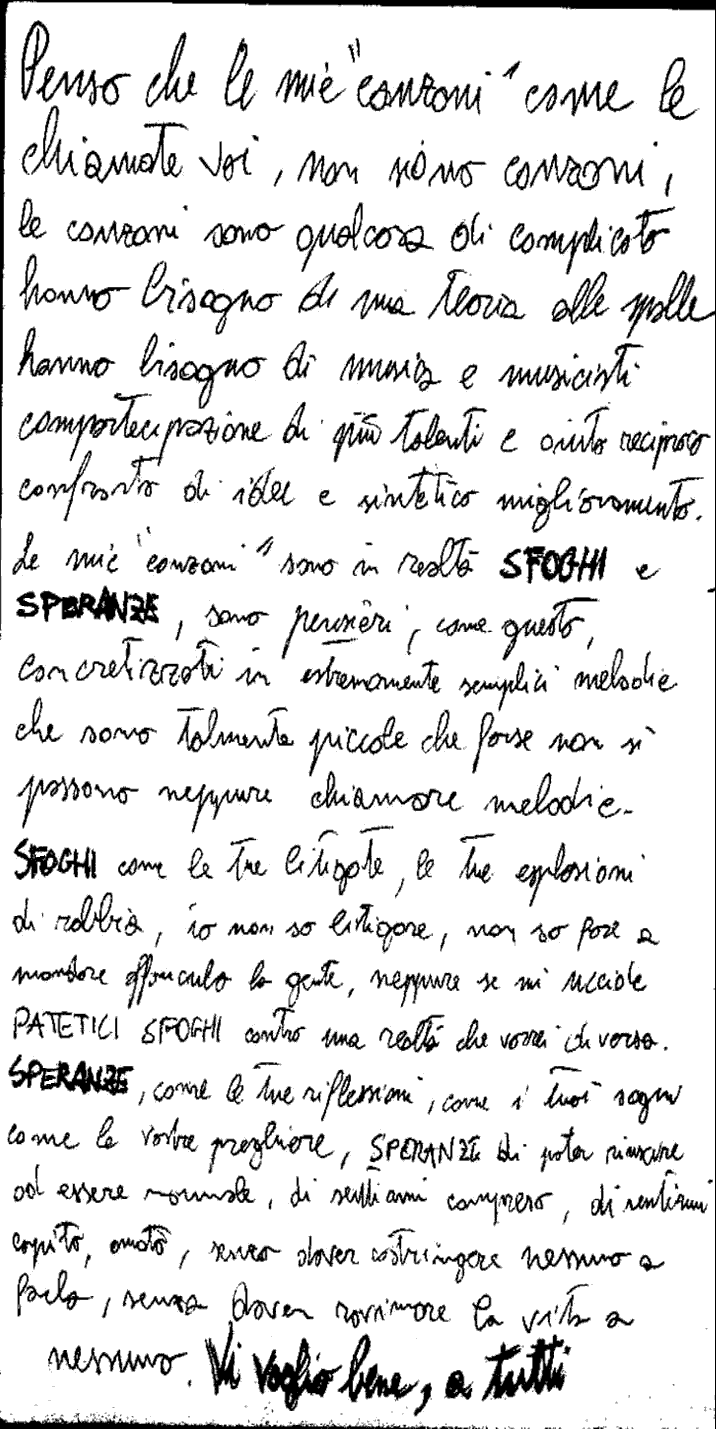 Penso che le mie "canzoni" come le
chiamate voi, non sono canzoni,
le canzoni sono qualcosa di complicato
hanno bisogno di una teoria alle spalle
hanno bisogno di musica e musicisti
compartecipazione di più talenti e aiuto reciproco
confronto di idee e sintetico miglioramento.
Le mie "canzoni" sono in realtà SFOGHI e
SPERANZE, sono pensieri, come questo,
concretizzati in estremamente semplici melodie
che sono talmente piccole che forse non si
possono neppure chiamare melodie.
SFOGHI come le tue litigate, le tue esplosioni
di rabbia, io non so litigare, non so fare a
mandare affanculo la gente, neppure se mi uccide
PATETICI SFOGHI contro una realtà che vorrei diversa.
SPERANZE, come le tue riflessioni, come i tuoi sogni
come le vostre preghiere, SPERANZE di poter riuscire
ad essere normale, di sentirmi compreso, di sentirmi
capito, amato, senza dover costringere nessuno a
farlo, senza dover rovinare la vita a
nessuno. Vi voglio bene, a tutti